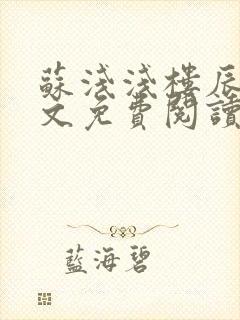 蘇淺淺樓辰
文免費閱讀
藍海碧